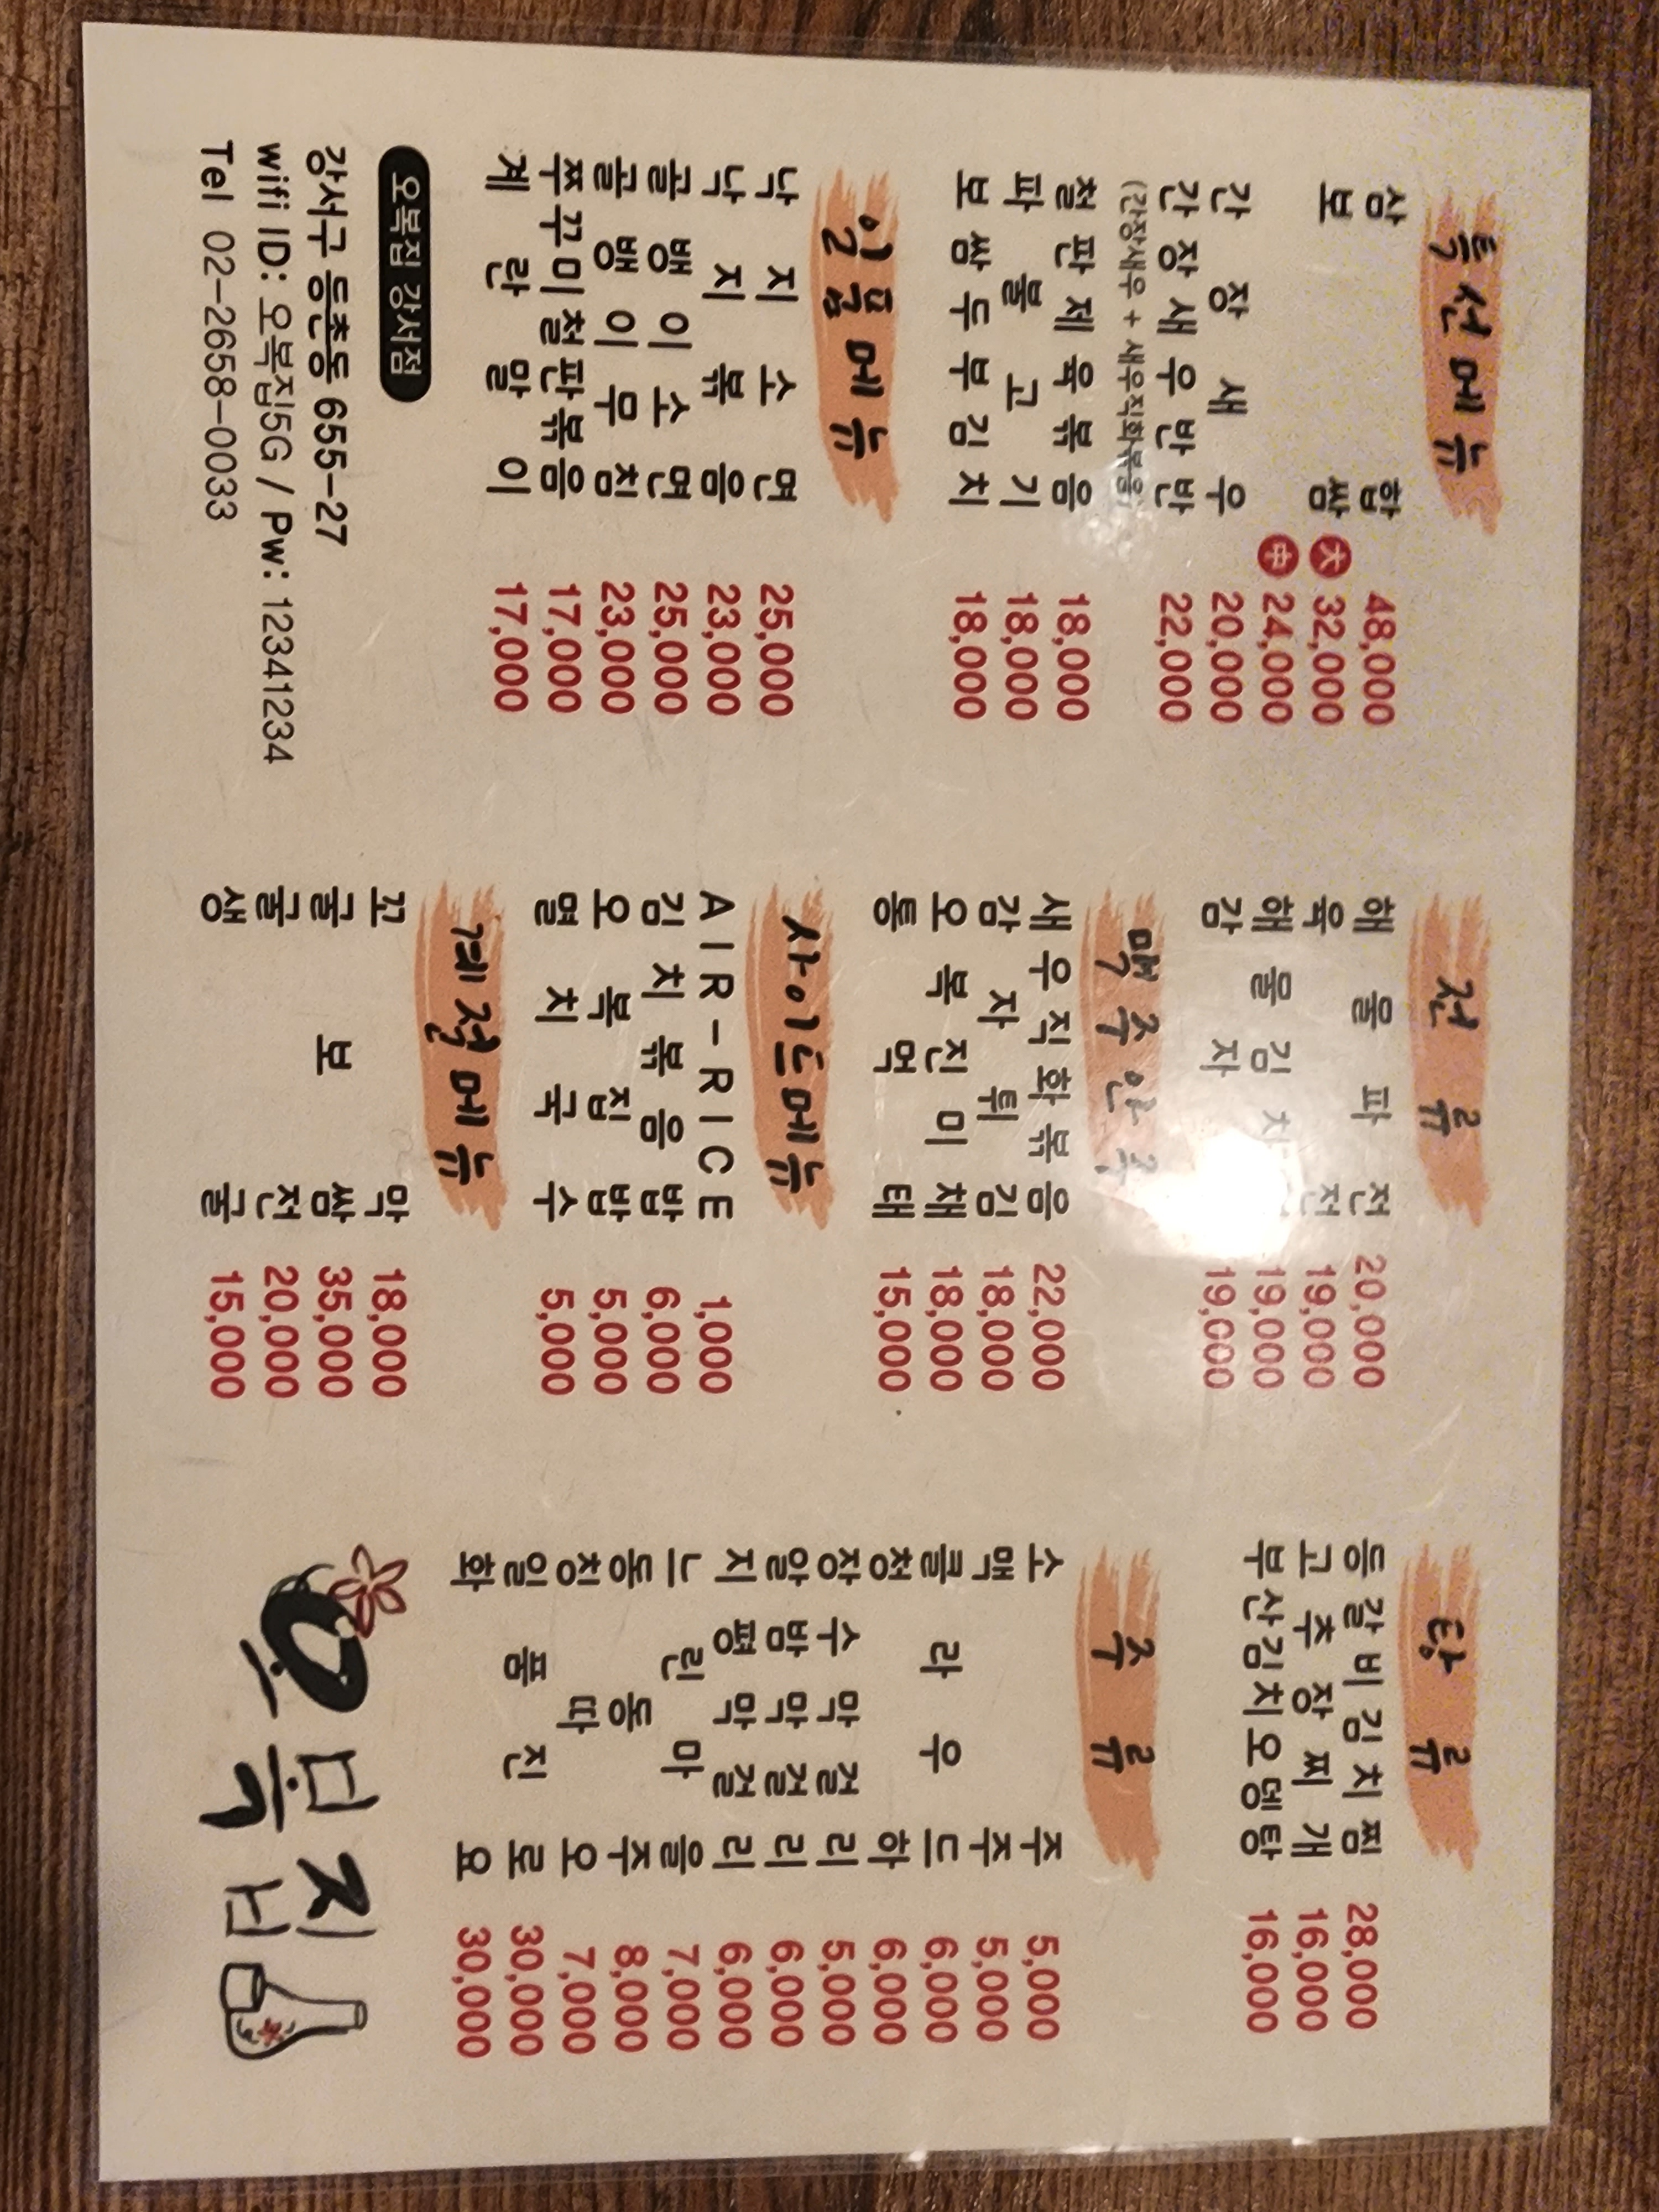 특선메뉴
삼합 48,000
보쌈 大 32,000
中 24,000
간장새우 20,000
간장새우반반 22,000
(간장새우 + 새우직화볶음)
철판제육볶음 18,000
파불고기 18,000
보쌈두부김치 18,000
일품메뉴
낙지소면 25,000
낙지볶음 23,000
골뱅이소면 25,000
골뱅이무침 23,000
쭈꾸미철판볶음 17,000
계란말이 17,000
오복집 강서점
강서구 등촌동 655-27
wifi ID: 오복집5G / Pw: 12341234
Tel 02-2658-0033
전류
해물파전 20,000
육전 19,000
해물김치 19,000
감자 19,000
맥주안주
새우직화볶음 22,000
감자튀김 18,000
오복진미채 18,000
통먹태 15,000
사이드메뉴
AIR-RICE 1,000
김치볶음밥 6,000
오복집밥 5,000
멸치국수 5,000
계절메뉴
꼬막 18,000
굴보쌈 35,000
굴전 20,000
생굴 15,000
탕류
등갈비김치찜 28,000
고추장찌개 16,000
부산김치오뎅탕 16,000
주류
소주 5,000
맥주 5,000
클라우드 6,000
청하 6,000
장수막걸리 5,000
알밤막걸리 6,000
지평막걸리 6,000
느린마을 7,000
동동주 8,000
칭따오 7,000
일품진로 30,000
화요 30,000
오복집